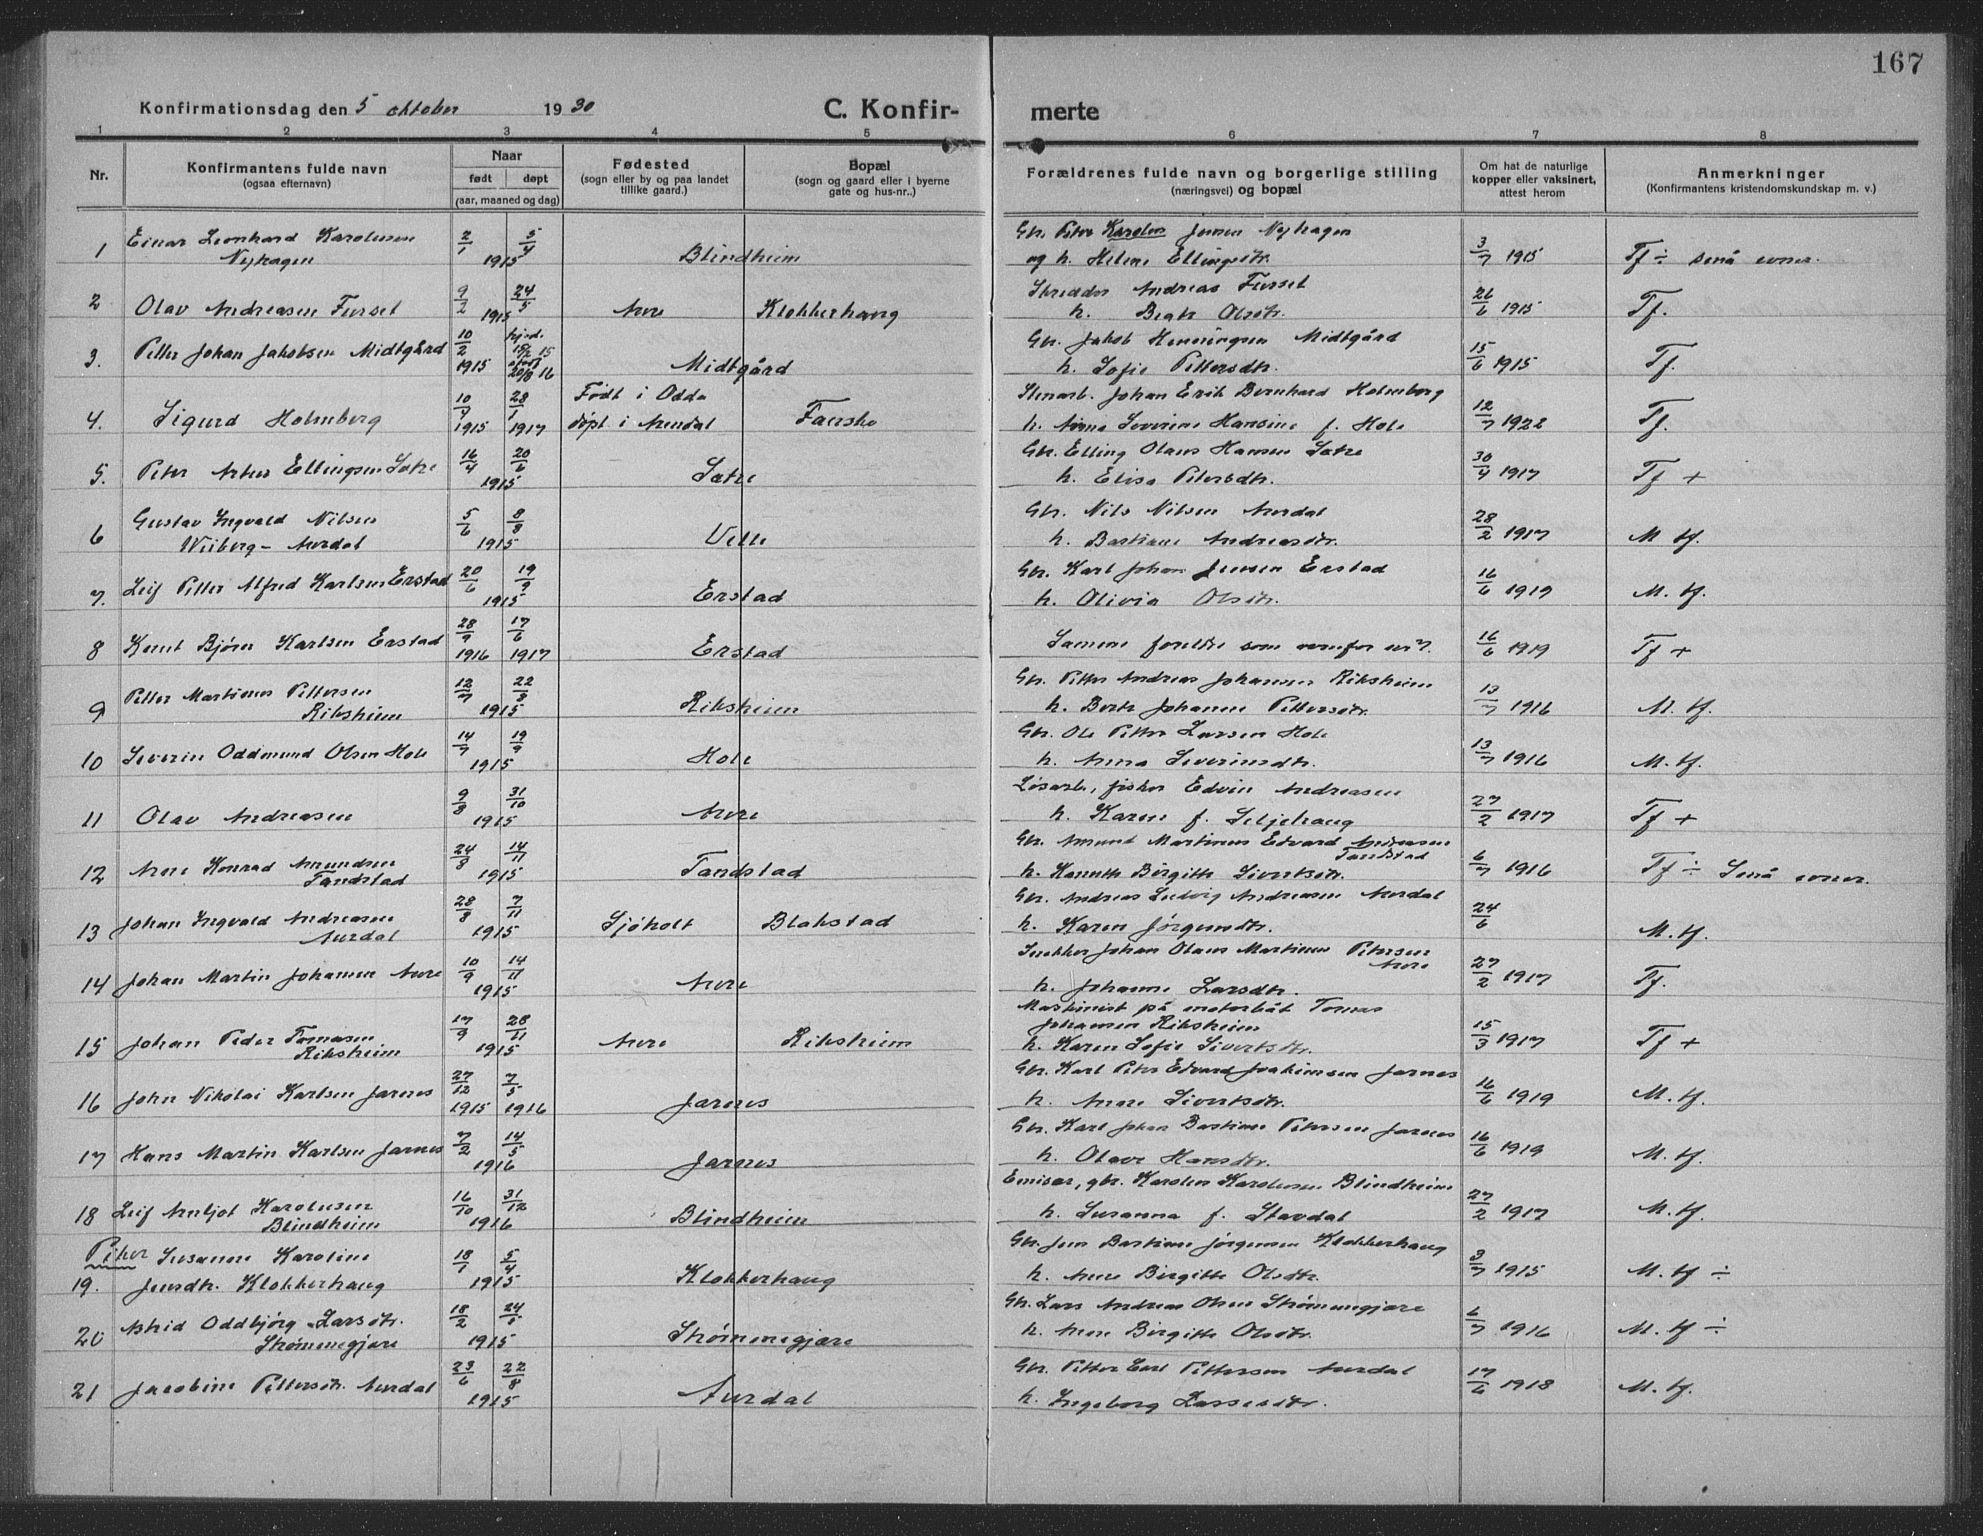 167
Konfirmationsdag den 5 oktober 1930 C. Konfir- merte
1 2 3 4 5 6 7 8
Nr. Konfirmantens fulde navn (ogsaa efternavn) Naar født døpt (aar, maaned og dag) Fødested (sogn eller by og paa landet tillike gaard.) Bopæl (sogn og gaard eller i byerne gate og hus-nr..) Forældrenes fulde navn og borgerlige stilling (næringsvei) og bopæl Om hat de naturlige kopper eller vaksinert, attest herom Anmerkninger (Konfirmantens kristendomskundskap m. v.)
Einar Leonhard Karolusen 2/1 5/4 Gbr. Peter Karolus Jensen Nyhagen
1 Nyhagen 1915 Blindheim og h. Helene Ellingsdtr. 3/7 1915 Tf ÷ små evner.
2 Olav Andreasen Furset 9/2 24/5 1915 Aure Klokkerhaug Skredder Andreas Furset
h. Beate Olsdtr. 26/6 1915 Tf.
3. Petter Johan Jakobsen Midtgård 10/2 1915 hjed. 18/2 15 stadf. 20/8 16 Midtgård Gbr. Jakob Henningsen Midtgård
h. Sofie Pettersdtr. 15/6 1915 Tf.
4. Sigurd Holmberg 10/4 1915 28/1 1917 Født i Odda døpt i Arendal Faursko Stenarb. Johan Erik Bernhard Holmberg
h. Anna Severine Hansine f. Hole 12/7 1922 Tf.
5. Peter Artur Ellingsen Sætre 16/4 20/6 1915 Sætre Gbr. Elling Olaus Hansen Sætre
h. Elisa Petersdtr. 30/4 1917 Tf +
6 Gustav Ingvald Nilsen Wiiberg - Aurdal 5/6 8/8 1915 Velle Gbr. Nils Nilsen Aurdal
h. Bastiane Andreasdtr. 28/2 1917 M. tf.
7. Leif Petter Alfred Karlsen Erstad 20/6 19/9 1915 Erstad Gbr. Karl Johan Jensen Erstad
h. Olivia Olsdtr. 16/6 1919 M. tf.
8 Knut Bjørn Karlsen Erstad 28/9 1916 17/6 1917 Erstad Samme foreldre som ovenfor nr 7. 16/6 1919 Tf +
9 Petter Martinus Pettersen Riksheim 12/7 22/8 1915 Riksheim Gbr. Petter Andreas Johansen Riksheim
h. Berte Johanne Pettersdtr. 13/7 1916 M. tf.
10 Severin Oddmund Olsen Hole 14/7 19/9 1915 Hole Gbr. Ole Petter Larsen Hole
h. Anna Severinsdtr. 13/7 1916 M. tf.
11 Olav Andreasen 9/8 31/10 1915 Aure Løsarb., fisker Edvin Andreasen
h. Karen f. Seljehaug 27/2 1917 Tf +
12 Arne Konrad Amundsen Tandstad 24/8 14/11 1915 Tandstad Gbr. Amund Martinus Edvard Andreasen Tandstad
h. Hannette Birgitte Sivertsdtr. 6/7 1916 Tf ÷ Små evner.
13 Johan Ingvald Andreasen Aurdal 28/8 7/11 1915 Sjøholt Blakstad Gbr. Andreas Ludvig Andreasen Aurdal
h. Karen Jørgensdtr. 24/6 M. tf.
14 Johan Martin Johansen Aure 10/9 14/11 1915 Aure Snekker Johan Olaus Martinus Petersen Aure
h. Johanne Larsdtr. 27/2 1917 Tf.
15 Johan Peder Tomasen Riksheim 17/9 28/11 1915 Aure Riksheim Maskinist på motorbåt Tomas
Johansen Riksheim
h. Karen Sofie Sivertsdtr. 15/3 1917 Tf +
16 John Nikolai Karlsen Jarnes 27/12 1915 7/5 1916 Jarnes Gbr. Karl Peter Edvard Joakimsen Jarnes
h. Anne Sivertsdtr. 16/6 1919 M. tf.
17 Hans Martin Karlsen Jarnes 7/2 14/5 1916 Jarnes Gbr. Karl Johan Bastian Petersen Jarnes
h. Olave Hansdtr. 16/6 1919 M. tf.
18 Leif Arnljot Karolusen Blindheim 16/10 31/12 1916 Blindheim Emisær, gbr. Karolus Karolusen Blindheim
h. Susanna f. Stavdal 27/2 1917 M. tf.
Piker Susanne Karoline 18/1 5/4 Gbr. Jens Bastian Jørgensen Klokkerhaug
19. Jensdtr. Klokkerhaug 1915 Klokkerhaug h. Anne Birgitte Olsdtr. 3/7 1915 M. tf ÷
20 Astrid Oddbjørg Larsdtr. Strømmegjære 18/2 24/5 1915 Strømmegjære Gbr. Lars Andreas Olsen Strømmegjære
h. Anne Birgitte Olsdtr. 6/7 1916 M. tf ÷
21 Jacobine Pettersdtr. Aurdal 23/6 22/8 1915 Aurdal Gbr. Petter Carl Pettersen Aurdal
h. Ingeborg Lassesdtr. 17/6 1918 M. tf.